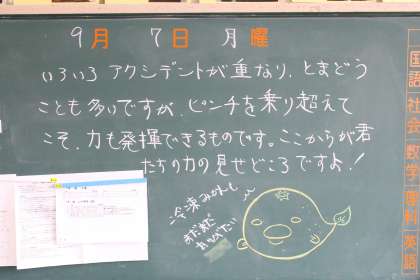 9月 7日 月曜
いろいろ アクシデントが重なり、とまどう
ことも多いですが、ピンチを乗り超えて
こそ、力も発揮できるものです。ここからが君
たちの力の見せどころですよ!
冷凍みかんも
まだまだ
国語
社会
数学
理科
英語